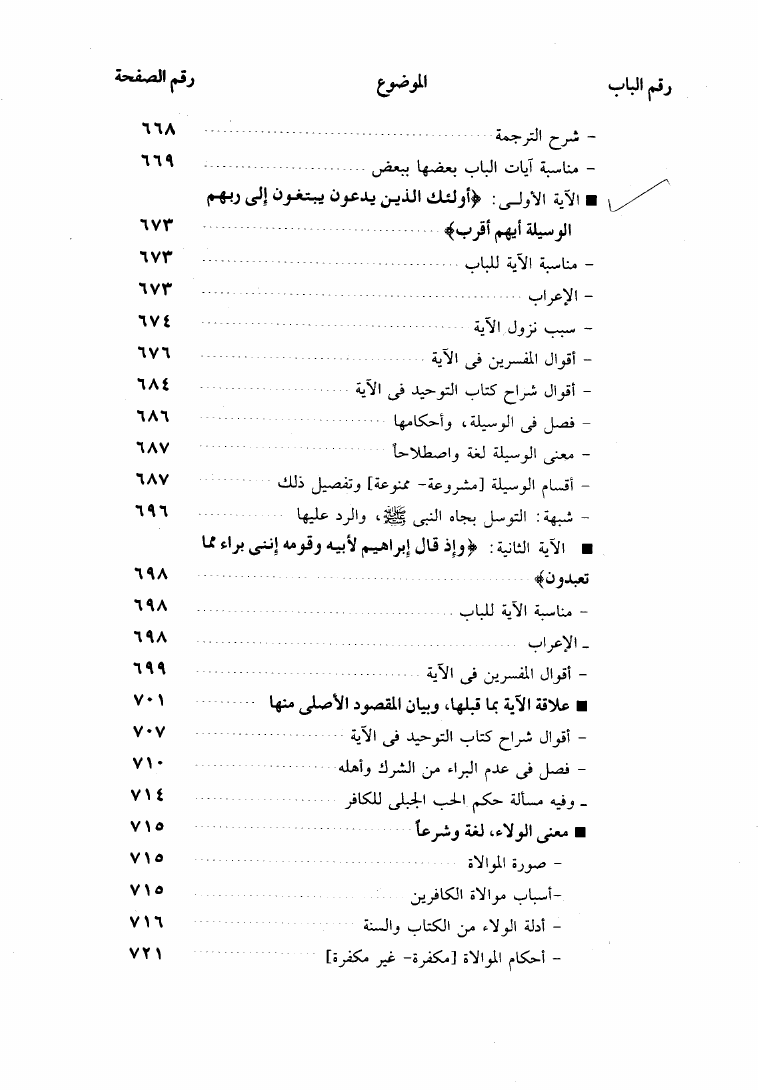 رقم الباب الموضوع رقم الصفحة
– شرح الترجمة ٦٦٨
– مناسبة آيات الباب بعضها ببعض ٦٦٩
■ الآية الأولى: ﴿أولئك الذين يدعون يبتغون إلى ربهم
الوسيلة أيهم أقرب﴾ ٦٧٣
– مناسبة الآية للباب ٦٧٣
– الإعراب ٦٧٣
– سبب نزول الآية ٦٧٤
– أقوال المفسرين فى الآية ٦٧٦
– أقوال شراح كتاب التوحيد فى الآية ٦٨٤
– فصل فى الوسيلة، وأحكامها ٦٨٦
– معنى الوسيلة لغة واصطلاحاً ٦٨٧
– أقسام الوسيلة [مشروعة- ممنوعة] وتفصيل ذلك ٦٨٧
– شبهة: التوسل بجاه النبى ﷺ، والرد عليها ٦٩٦
■ الآية الثانية: ﴿وإذ قال إبراهيم لأبيه وقومه إننى براء مما
تعبدون﴾ ٦٩٨
– مناسبة الآية للباب ٦٩٨
ـ الإعراب ٦٩٨
– أقوال المفسرين فى الآية ٦٩٩
■ علاقة الآية بما قبلها، وبيان المقصود الأصلى منها ٧٠١
– أقوال شراح كتاب التوحيد فى الآية ٧٠٧
– فصل فى عدم البراء من الشرك وأهله ٧١٠
ـ وفيه مسألة حكم الحب الجبلى للكافر ٧١٤
■ معنى الولاء، لغة وشرعاً ٧١٥
– صورة الموالاة ٧١٥
–أسباب موالاة الكافرين ٧١٥
– أدلة الولاء من الكتاب والسنة ٧١٦
– أحكام الموالاة [مكفرة- غير مكفرة] ٧٢١